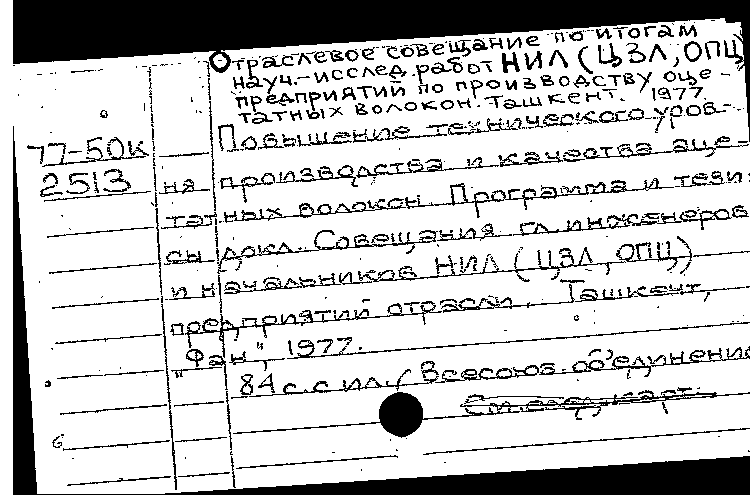 Отраслевое совещание по итогам
науч.-исслед. работ НИЛ (ЦЗЛ, ОПЦ)
предприятий по производству оце-
татных волокон. Ташкент. 1977
Повышение технического уров-
77-50к
2513
ня производства и качества аце-
татных волокон. Программа и тези-
сы докл. Совещания гл. инженеров
и начальников НИЛ (ЦЗЛ, ОПЦ)
предприятий отрасли. Ташкент,
"Фан", 1977.
84 с. с ил. (Всесоюз. об'единение
См. след. карт.
6